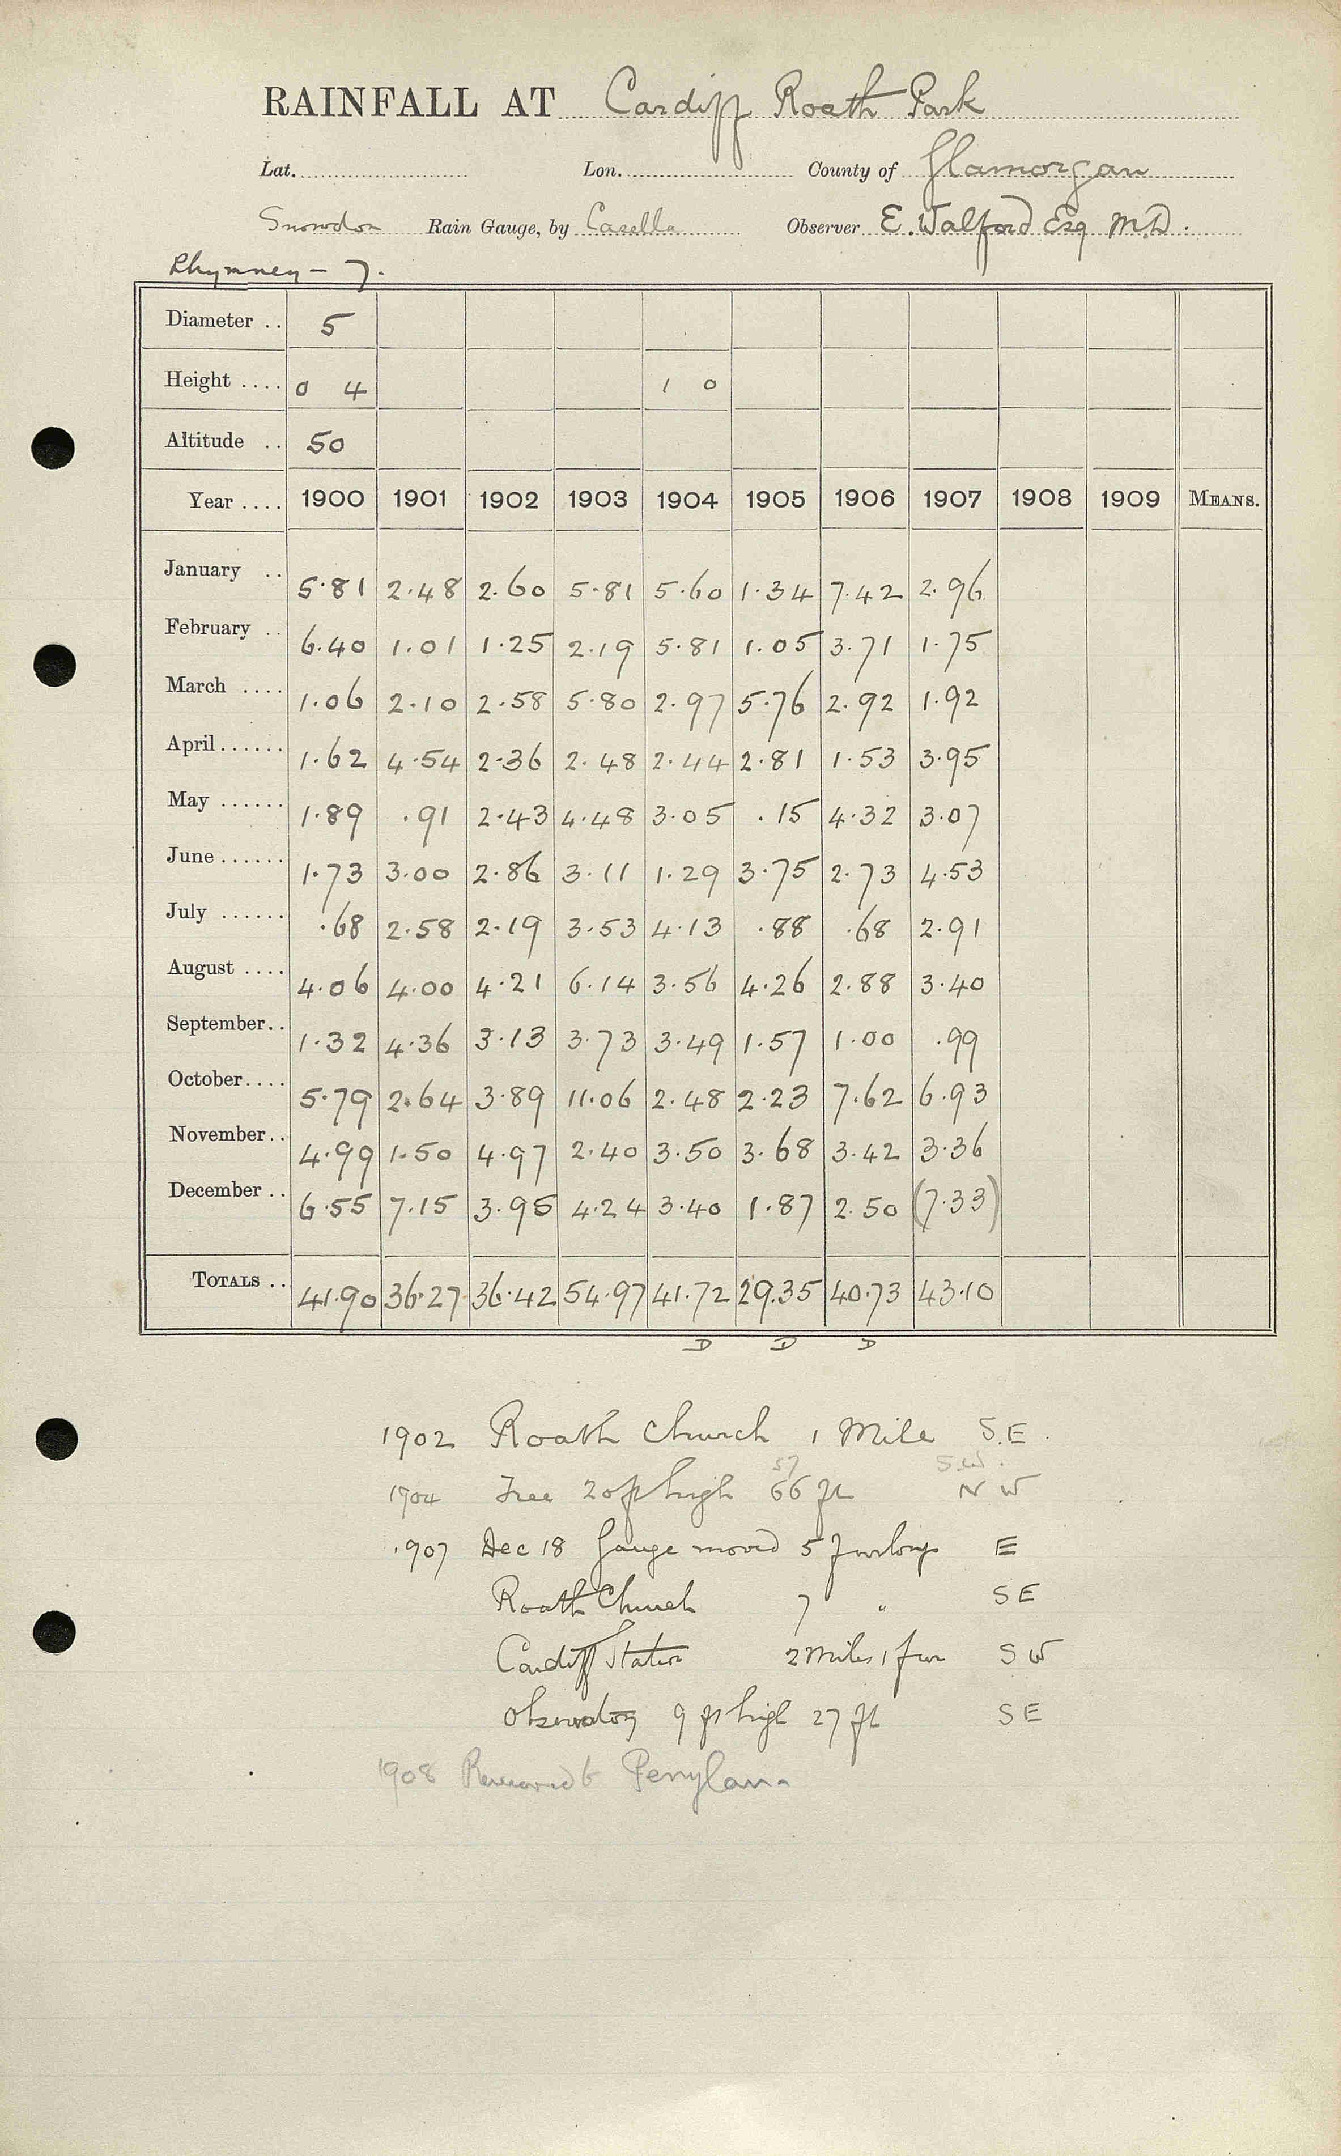 RAINFALL AT Cardiff Roath Park
Lat. Lon. County of Glamorgan
Snowdon Rain Gauge, by Casella Observer E. Walford Esq M.D.
Rhymney – 7.
Diameter .. 5
Height .... 0 4 1 0
Altitude .. 50
Year .... 1900 1901 1902 1903 1904 1905 1906 1907 1908 1909 MEANS.
January .. 5.81 2.48 2.60 5.81 5.60 1.34 7.42 2.96
February .. 6.40 1.01 1.25 2.19 5.81 1.05 3.71 1.75
March .... 1.06 2.10 2.58 5.80 2.97 5.76 2.92 1.92
April...... 1.62 4.54 2.36 2.48 2.44 2.81 1.53 3.95
May ...... 1.89 .91 2.43 4.48 3.05 .15 4.32 3.07
June ...... 1.73 3.00 2.86 3.11 1.29 3.75 2.73 4.53
July ...... .68 2.58 2.19 3.53 4.13 .88 .68 2.91
August .... 4.06 4.00 4.21 6.14 3.56 4.26 2.88 3.40
September.. 1.32 4.36 3.13 3.73 3.49 1.57 1.00 .99
October.... 5.79 2.64 3.89 11.06 2.48 2.23 7.62 6.93
November.. 4.99 1.50 4.97 2.40 3.50 3.68 3.42 3.36
December .. 6.55 7.15 3.95 4.24 3.40 1.87 2.50 (7.33)
TOTALS .. 41.90 36.27 36.42 54.97 41.72 29.35 40.73 43.10
D D D
1902 Roath Church 1 Mile S.E.
57 S.W.
1904 Tree 20 ft high 66 ft N W
1907 Dec 18 Gauge moved 5 furlongs E
Roath Church 7 " SE
Cardiff Station 2 Miles 1 fur S W
Observatory 9 ft high 27 ft SE
1908 Removed to Penylan.